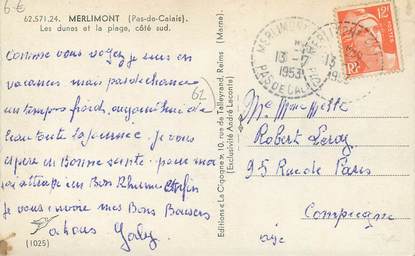 6 €
62.571.24. MERLIMONT (Pas-de-Calais).
Les dunes et la plage, côté sud.
Comme vous voyez je suis en
vacances mais pas de chance
un temps froid, aujourd'hui de
l'eau toute la journee. Je vous
espere en Bonne sante. pour moi
j'ai attrapé un Bon Rhume Enfin
Je vous envoie mes Bons Baisers
a tous Gaby
(1025)
62
Editions « La Cigogne », 10, rue de Talleyrand, Reims (Marne).
(Exclusivité André Leconte)
MERLIMONT
13-7
1953
PAS DE CALAIS
12F
RF
Mr Mme
Robert Leroy
95 Rue de Paris
Compiegne